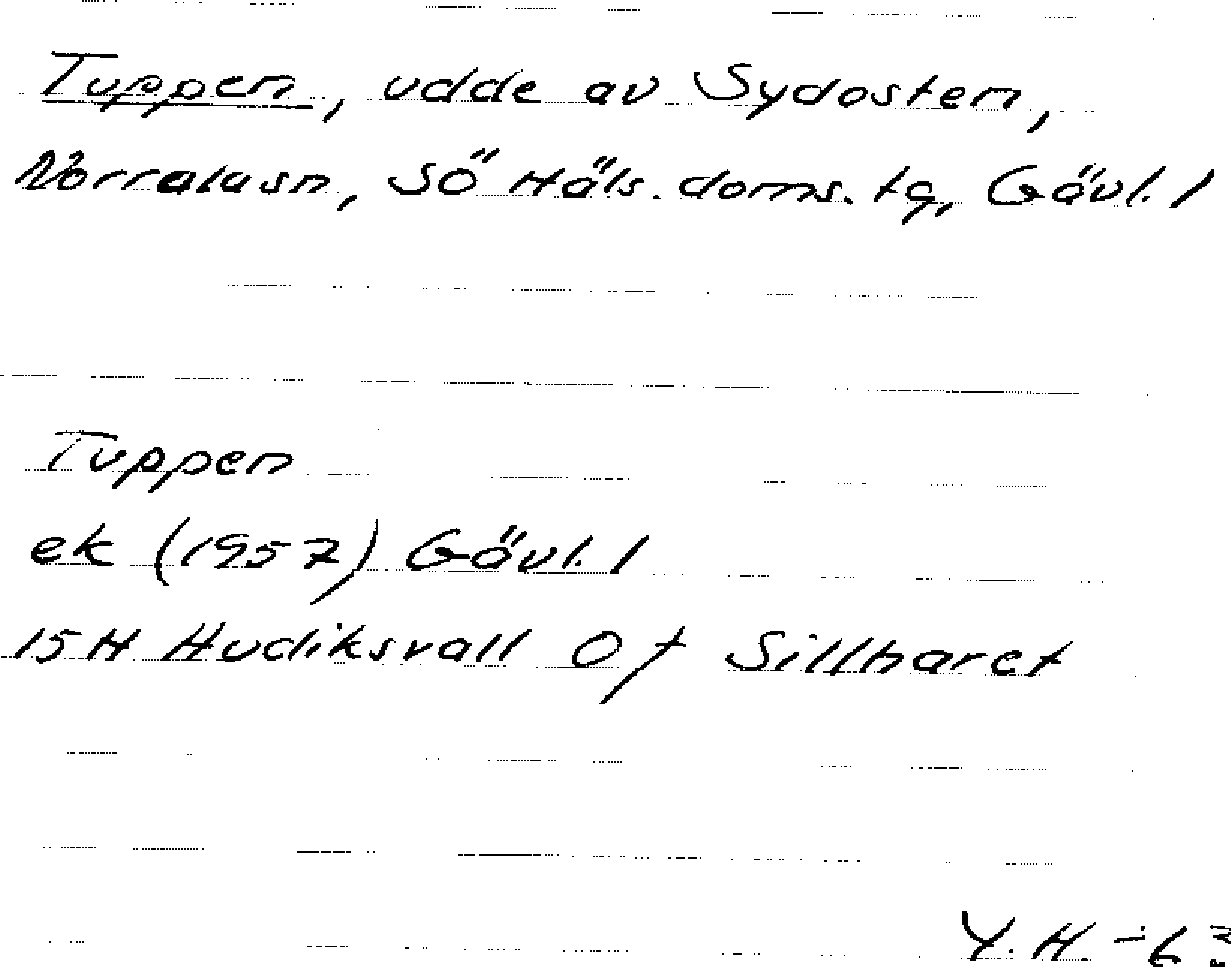 Tuppen, udde av Sydosten,
Norralasn, SÖ Häls. doms. tg, Gävl. l
Tuppen
ek (1957) Gävl. l
15H Hudiksvall Of Sillharet
Y. H.